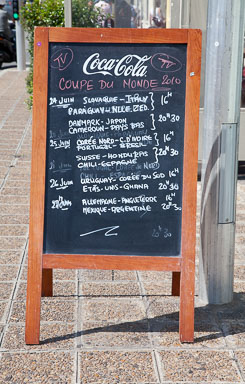 TV
Coca-Cola
COUPE DU MONDE 2010
24 JUIN SLOVAQUIE - ITALY } 16H
PARAGUAY - NLLE ZED. }
DANMARK - JAPON } 20H30
CAMEROUN - PAYS BAS }
25 JUIN CORÉE NORD - C. D'IVOIRE } 16H
PORTUGAL - BRESIL }
SUISSE - HONDURAS } 20H30
CHILI - ESPAGNE }
26 JUIN URUGUAY - CORÉE DU SUD 16H
ETATS UNIS - GHANA 20H30
ALLEMAGNE - ANGLETERRE 16H
MEXIQUE - ARGENTINE 20H30